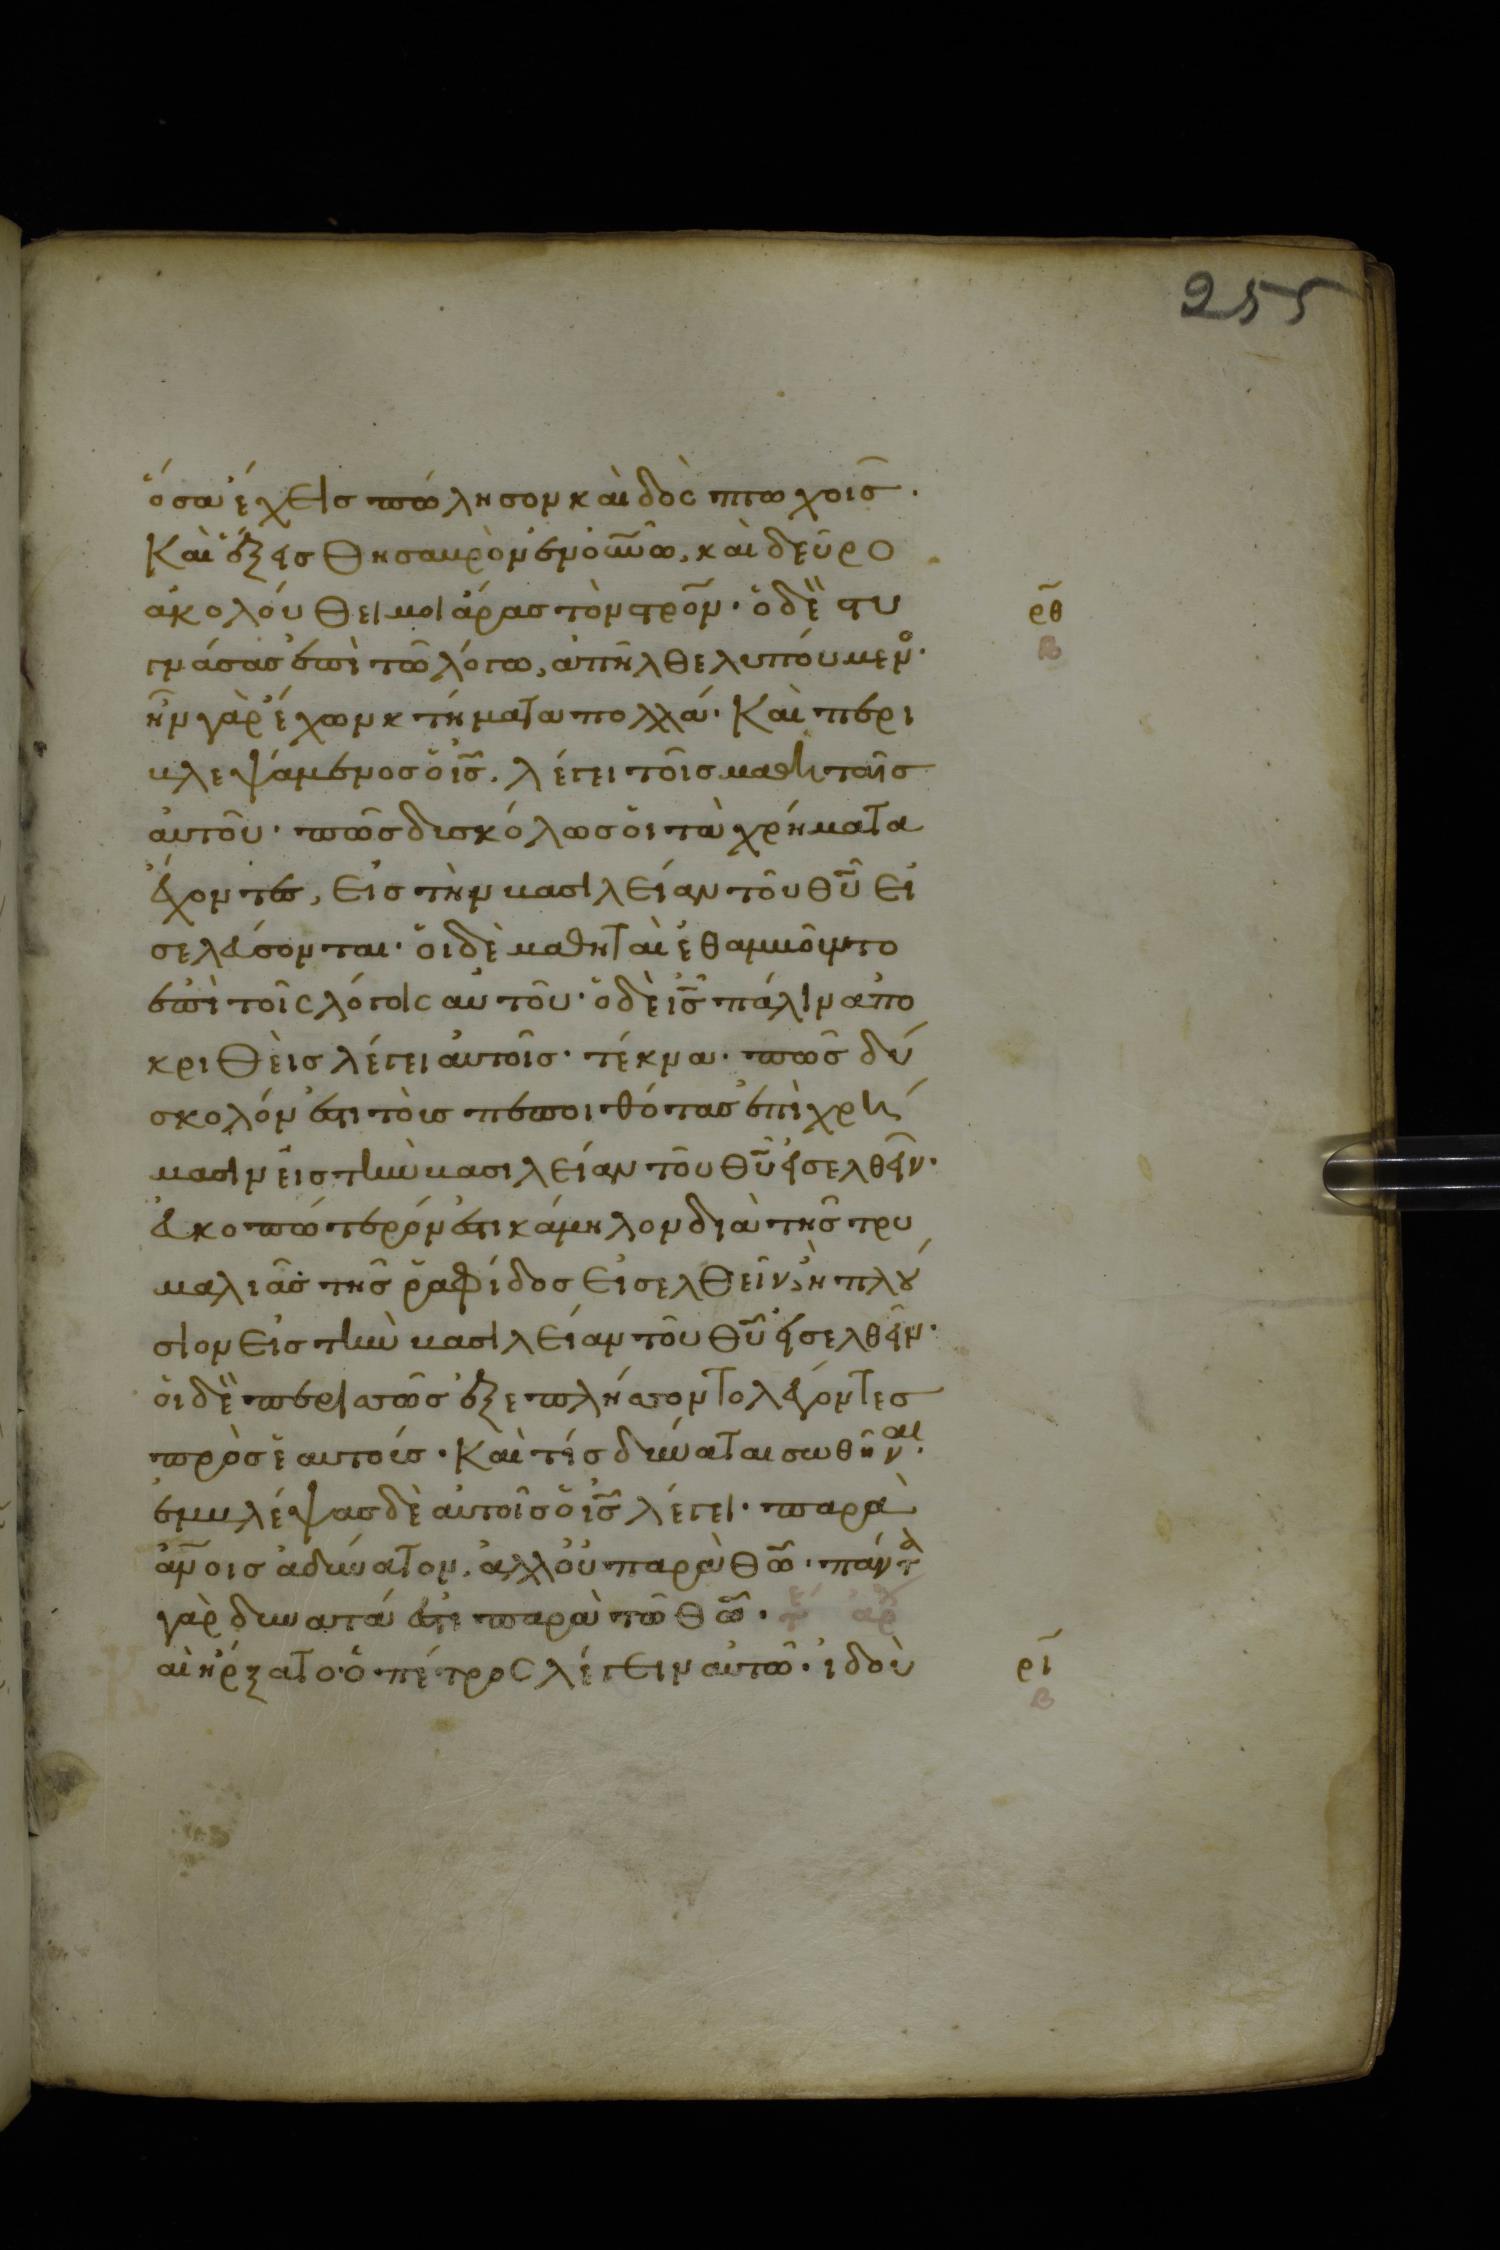 255
ὅσα ἔχεις πώλησον καὶ δὸς πτωχοῖς.
Καὶ ἕξεις θησαυρὸν ἐν οὐνῶ, καὶ δεῦρο
ἀκολούθει μοι ἄρας τὸν στρον· ὁ δὲ στυ
ρθ
β
γνάσας ἐπὶ τῶ λόγω, ἀπῆλθε λυπούμενο·
ἦν γὰρ ἔχων κτήματα πολλά· Καὶ περι
βλεψάμενος ὁ ις. λέγει τοῖς μαθηταῖς
αὐτοῦ· πῶς δισκόλως οἱ τὰ χρήματα
ἔχοντες, εἰς τὴν βασιλείαν τοῦ θυ εἰ
σελεύσονται· οἱ δὲ μαθηταὶ ἐθαμβοῦντο
ἐπὶ τοῖς λόγοις αὐτοῦ· ὁ δὲ ις πάλιν ἀπο
κριθεὶς λέγει αὐτοῖς· τέκνα· πῶς δύ
σκολόν ἐστι τοὺς πεποιθότας ἐπὶ χρή
μασιν εἰς τὴν βασιλείαν τοῦ θυ εἰσελθεῖν·
εὐκοπώτερόν ἐστι κάμηλον διὰ τῆς τρυ
μαλιᾶς τῆς ῥαφίδος εἰσελθεῖν, ἢ πλού
σιον εἰς τὴν βασιλείαν τοῦ θυ εἰσελθεῖν·
οἱ δὲ περισσῶς ἐξεπλήσσοντο λέγοντες
πρὸς ἑαυτούς· Καὶ τίς δύναται σωθῆναι·
ἐμβλέψας δὲ αὐτοῖς ὁ ις λέγει· παρὰ
ἀνοις ἀδύνατον. ἀλλ' οὐ παρὰ θω· πάντα
γὰρ δυνατά ἐστι παρὰ τῶ θω·
αὶ ἤρξατο ὁ πέτρος λέγειν αὐτῶ· ἰδοὺ
ρι
β